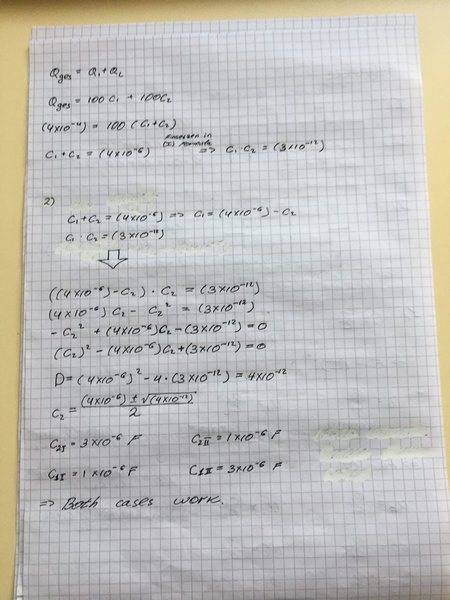 Qges = Q1 + Q2
Qges = 100 C1 + 100C2
(4×10⁻⁴) = 100 (C1+C2)
Einsetzen in
(I) Formula
C1+C2 = (4×10⁻⁶) => C1·C2 = (3×10⁻¹²)
2)
C1+C2 = (4×10⁻⁶) => C1 = (4×10⁻⁶) - C2
C1·C2 = (3×10⁻¹²)
((4×10⁻⁶)-C2)·C2 = (3×10⁻¹²)
(4×10⁻⁶)C2 - C2² = (3×10⁻¹²)
-C2² + (4×10⁻⁶)C2 - (3×10⁻¹²) = 0
(C2)² - (4×10⁻⁶)C2 + (3×10⁻¹²) = 0
D = (4×10⁻⁶)² - 4·(3×10⁻¹²) = 4×10⁻¹²
C2 = (4×10⁻⁶) ± √(4×10⁻¹²) / 2
C2I = 3×10⁻⁶ F C2II = 1×10⁻⁶ F
C1I = 1×10⁻⁶ F C1II = 3×10⁻⁶ F
=> Both cases work.